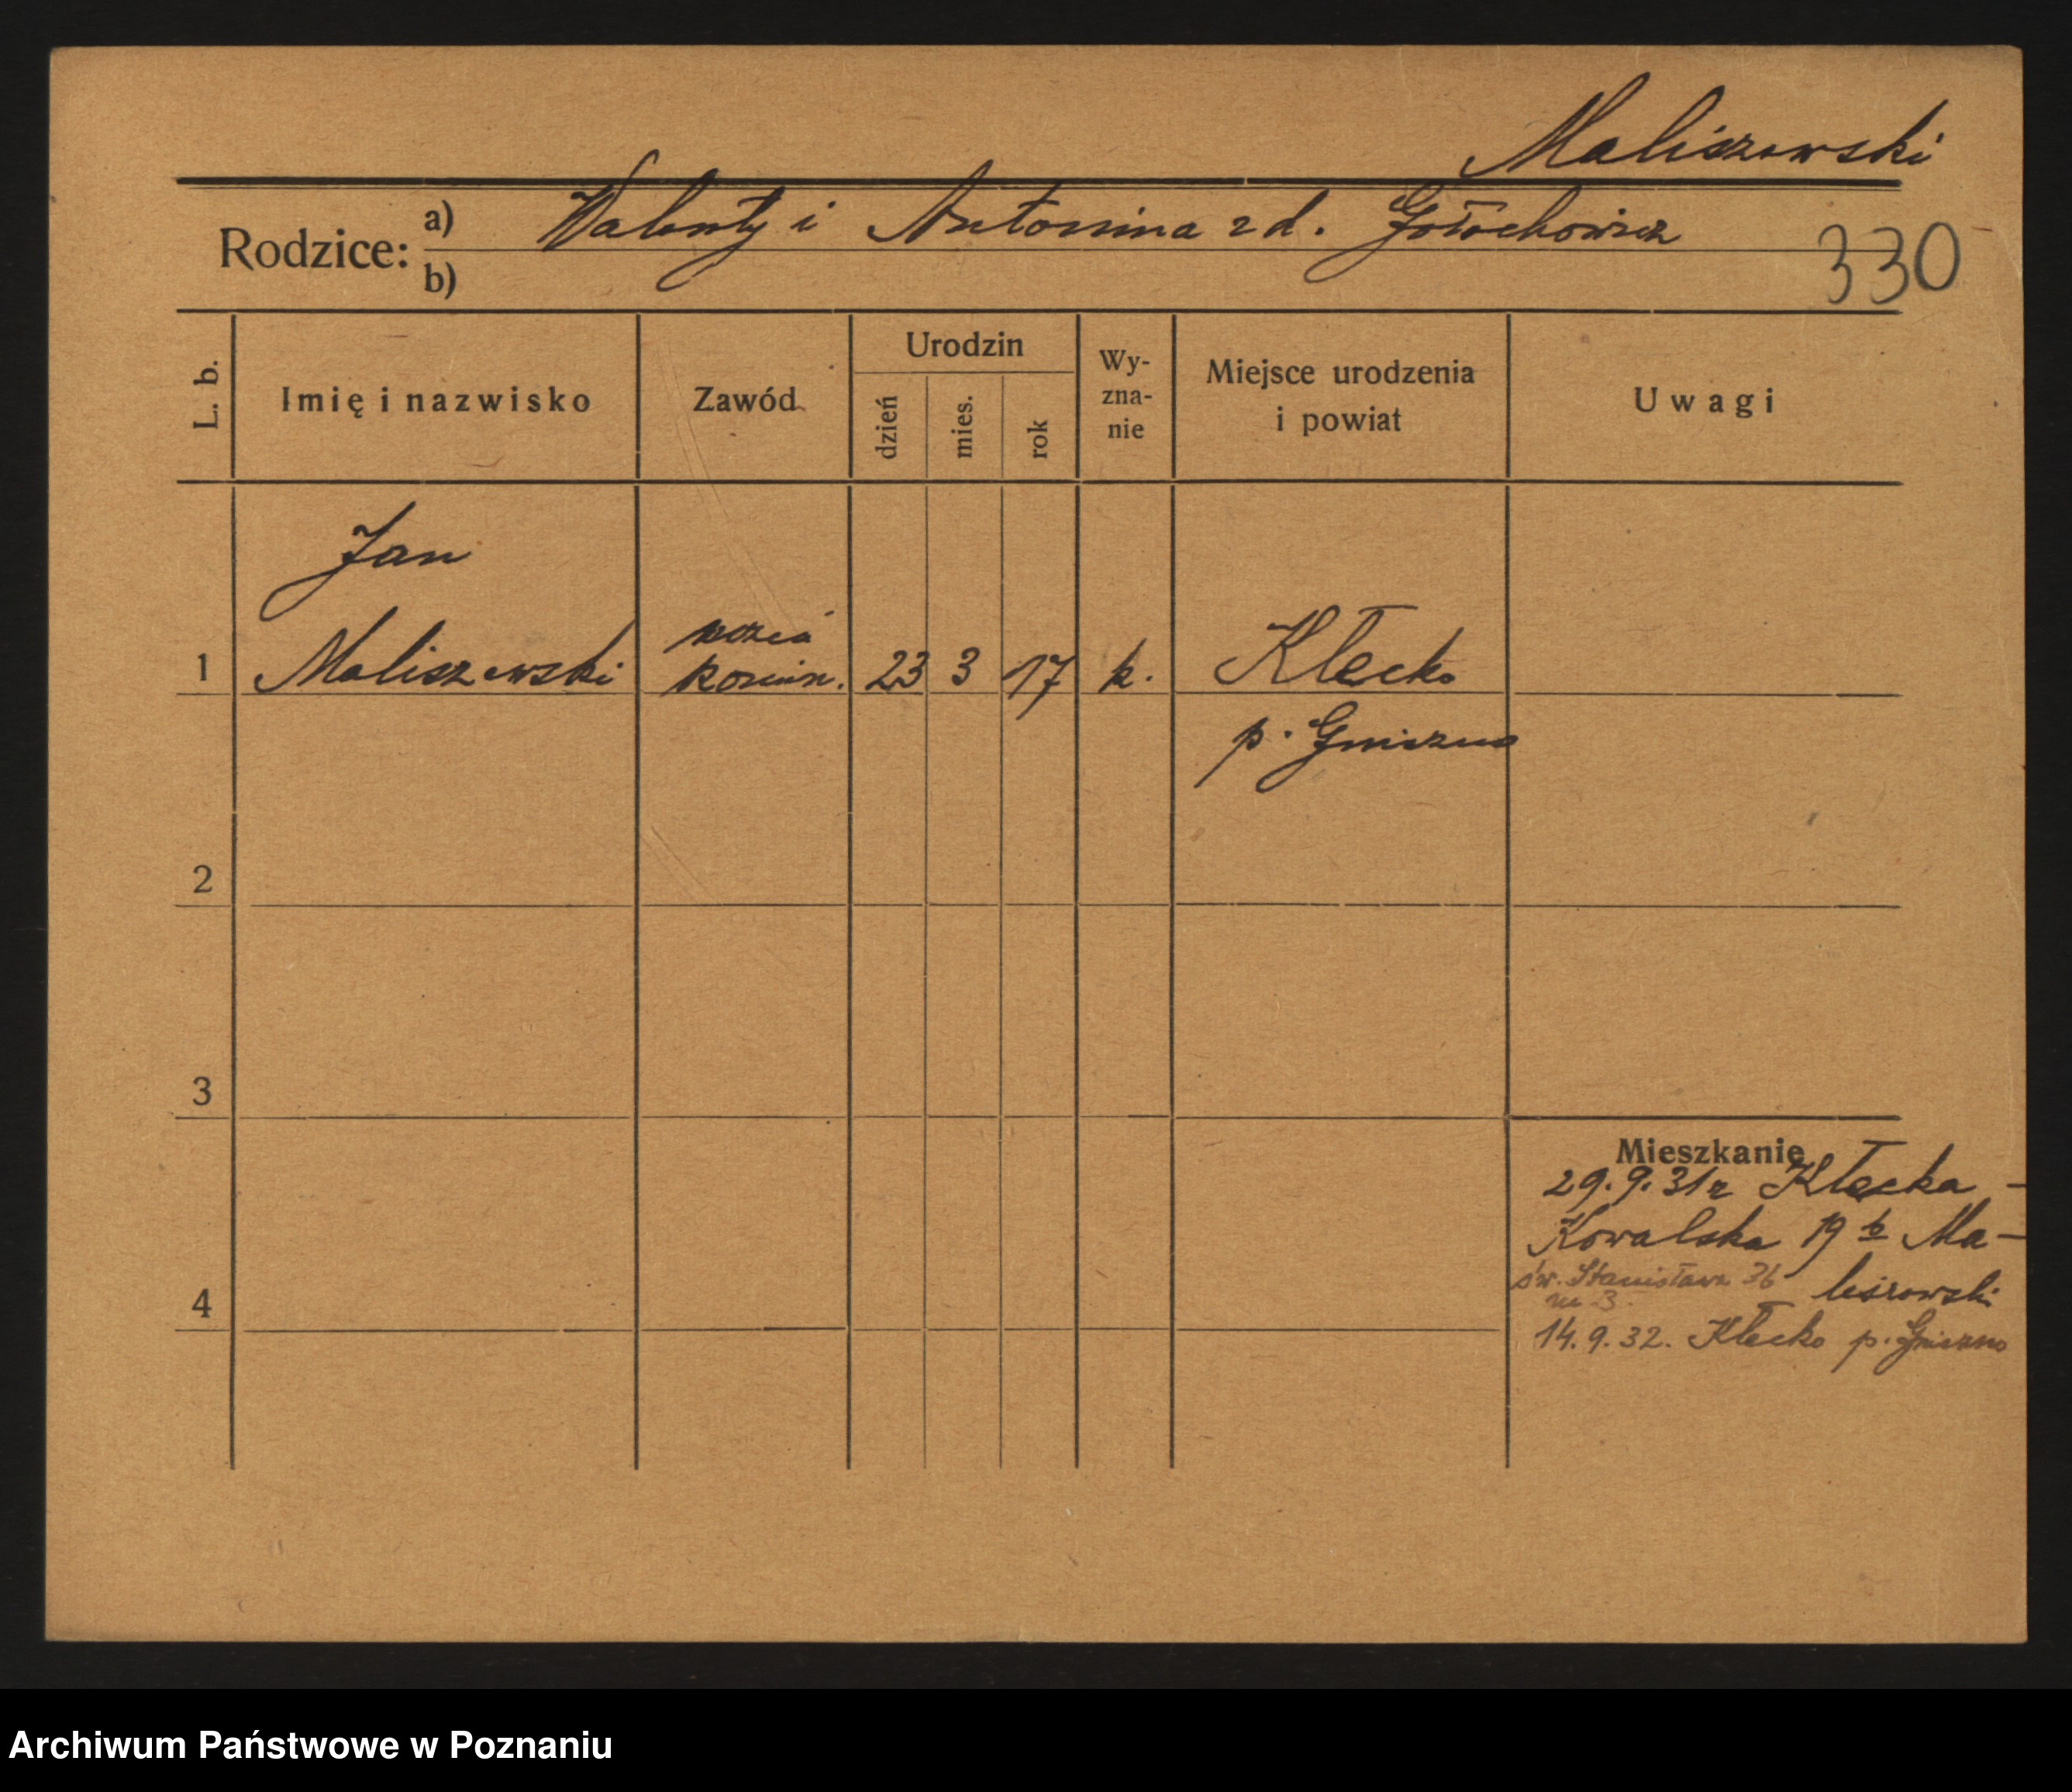 Maliszewski
Rodzice: a) Walenty i Antonina z d. Gołochowicz
b)
330
L. b.
Imię i nazwisko
Zawód
Urodzin
dzień
mies.
rok
Wy-
zna-
nie
Miejsce urodzenia
i powiat
Uwagi
Jan
1 Maliszewski uczeń komin. 23 3 17 k. Kłecko
p. Gniezno
2
3
4
Mieszkanie
29.9.31r Kłecka -
Kowalska 19 b Ma-
liszewski
św. Stanisława 36
m 3.
14.9.32. Kłecko p. Gniezno
Archiwum Państwowe w Poznaniu